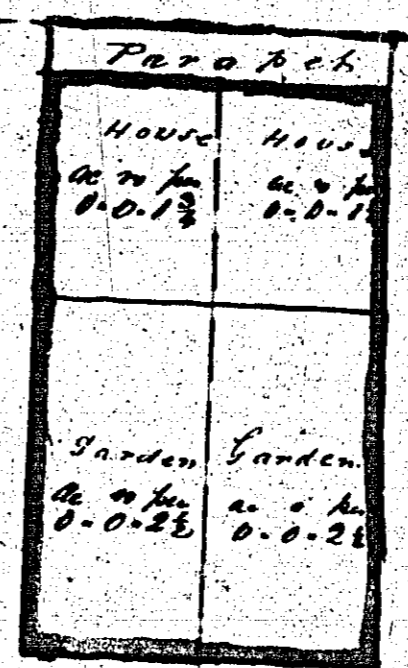 Parapet
House
ac r per
0-0-1¾
House
ac r per
0-0-1
Garden
ac r per
0-0-2½
Garden
ac r per
0-0-2½